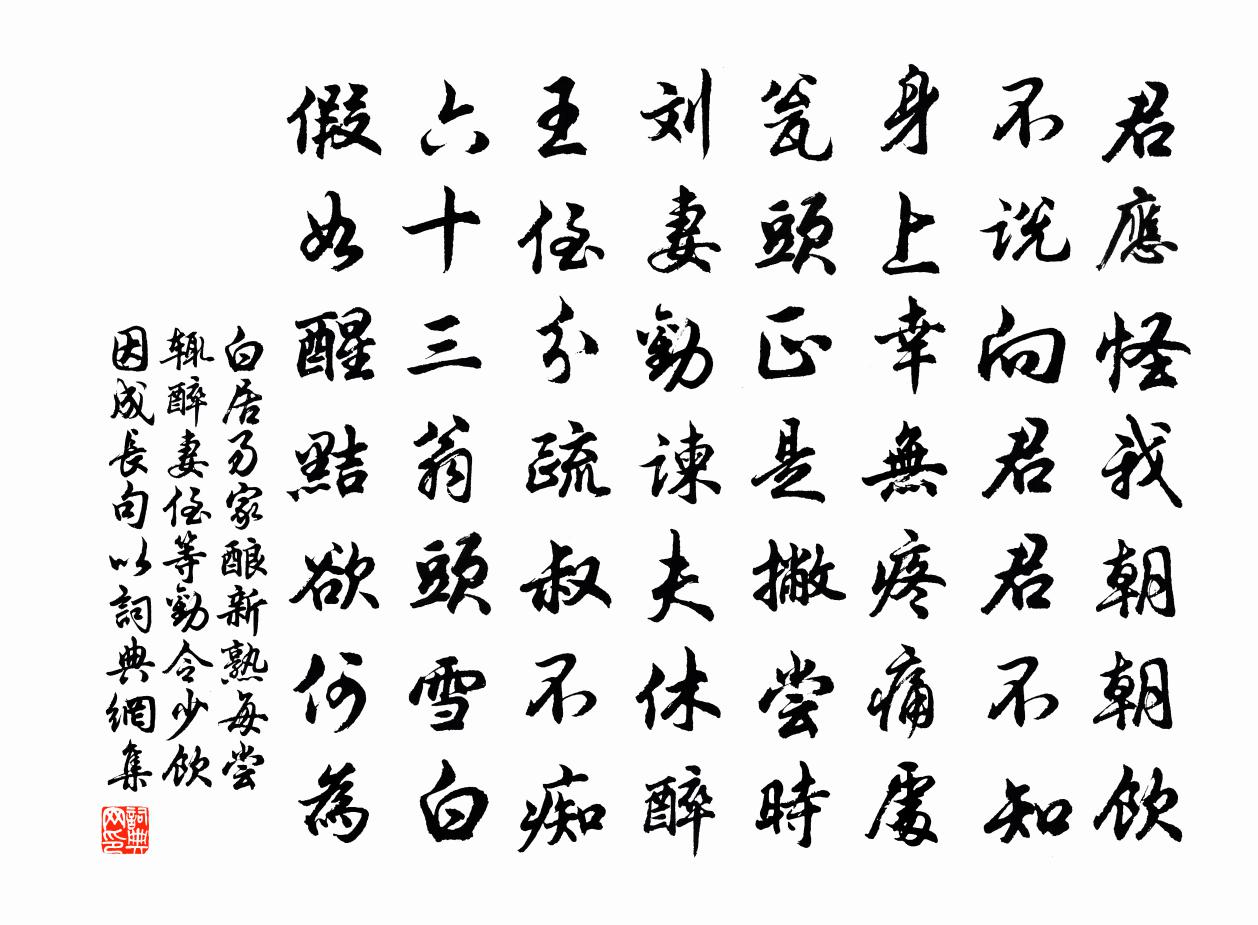 君應怪我朝朝飲
不说向君君不知
身上幸無疼痛處
瓮頭正是撇尝時
刘妻勸谏夫休醉
王侄分疏叔不痴
六十三翁頭雪白
假如醒點欲何為
白居易家酿新熟每尝
辄醉妻侄等勸令少飲
因成長句以詞典網集
詞典网印